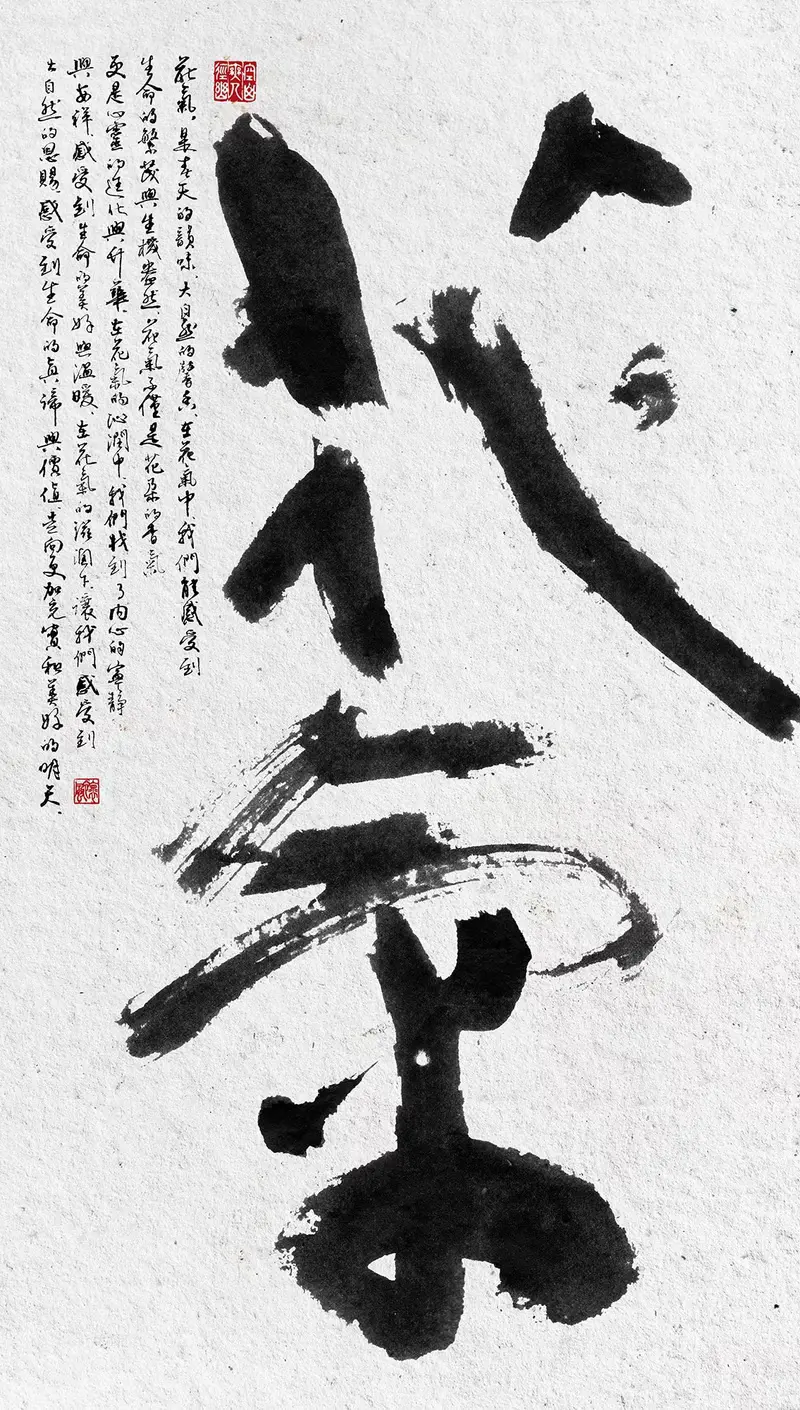 花氣
花氣，是春天的韻味、大自然的馨香、在花氣中、我們能感受到
生命的繁茂與生機盎然、花氣不僅是花朵的香氣
更是心靈的進化與升華、在花氣的沁潤中、我們找到了内心的寧靜
與安祥、感受到生命的美好與溫暖、在花氣的滋潤下、讓我們感受到
大自然的恩賜、感受到生命的真諦與價值、走向更加充實和美好的明天、